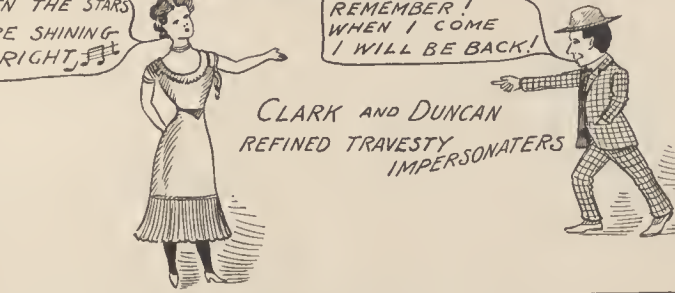 N THE STARS
RE SHINING
RIGHT
REMEMBER!
WHEN I COME
I WILL BE BACK!
CLARK AND DUNCAN
REFINED TRAVESTY
IMPERSONATERS